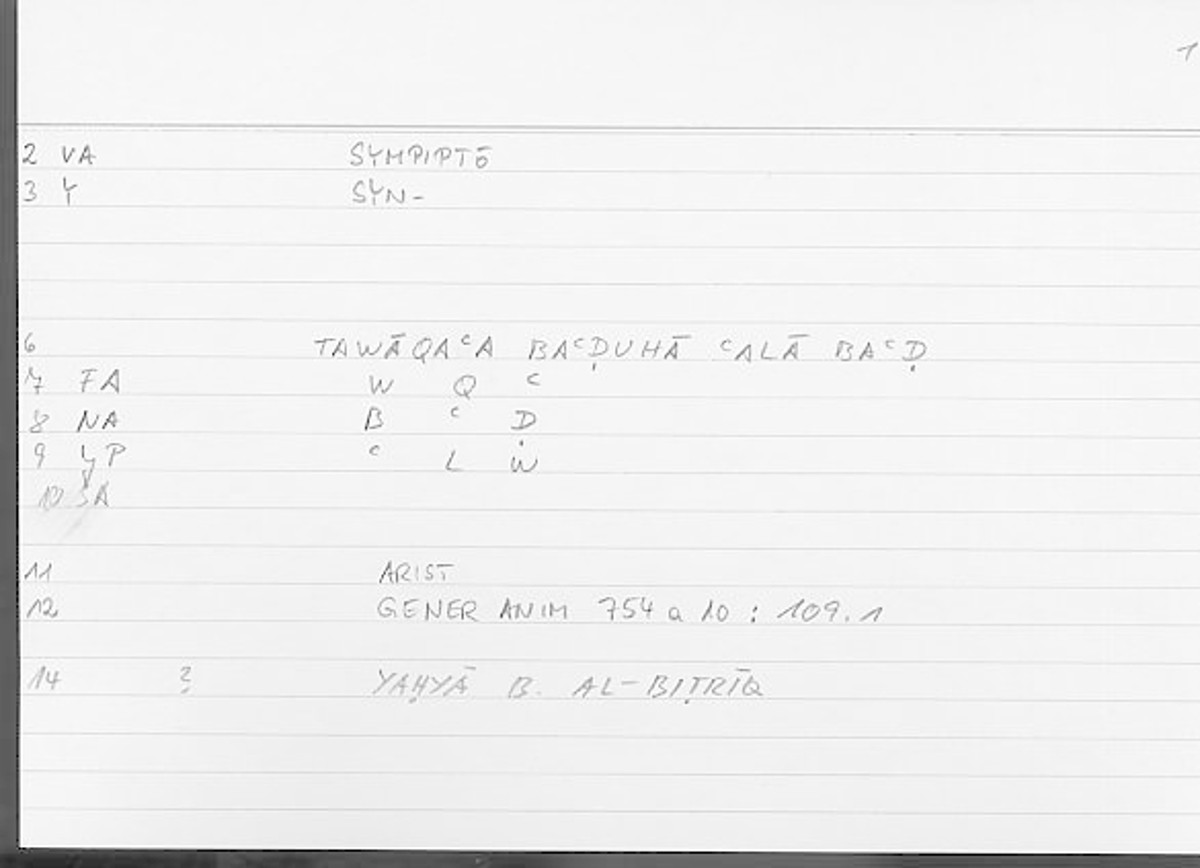 1
2 VA SYMPIPTŌ
3 Y SYN-
6 TAWĀQAᶜA BAᶜḌUHĀ ᶜALĀ BAᶜḌ
7 FA W Q ᶜ
8 NA B ᶜ Ḍ
9 YP ᶜ L W
10 SA
11 ARIST
12 GENER ANIM 754 a 10 : 109.1
14 ? YAḤYĀ B. AL-BIṬRĪQ